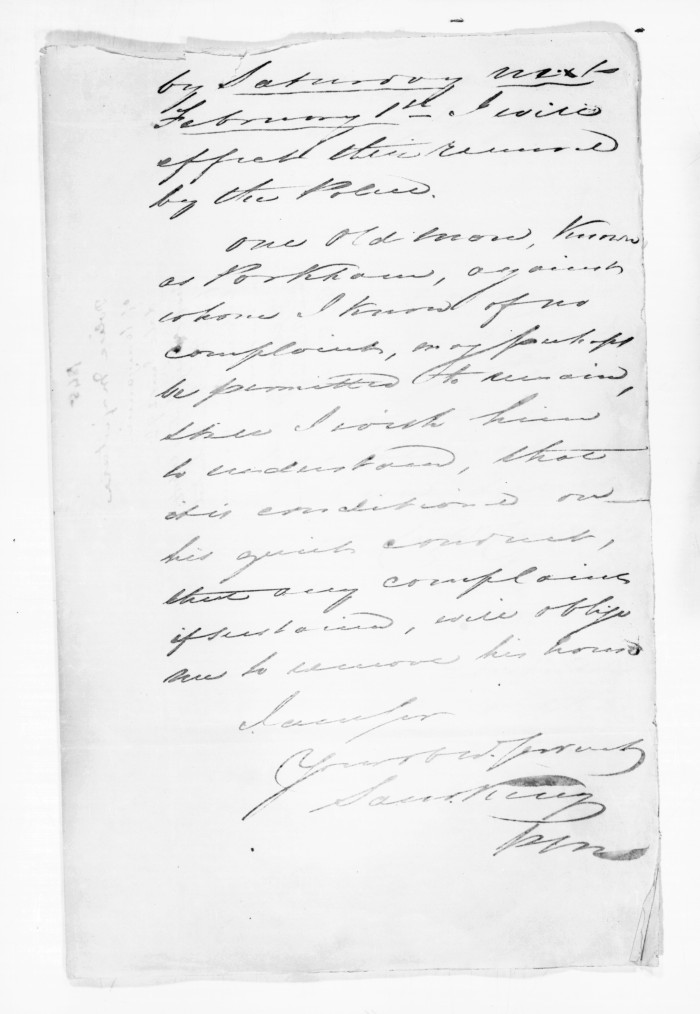 by Saturday next
February 1st I will
effect their removal
by the Police.
One Old man, Known
as Porkham, against
whom I know of no
complaint, may perhaps
be permitted to remain,
still I wish him
to understand, that
it is conditional on
his quiet conduct,
that any complaint
if sustained, will oblige
me to remove his house
I am Sir
Your obd. servant
Saml. King
PM